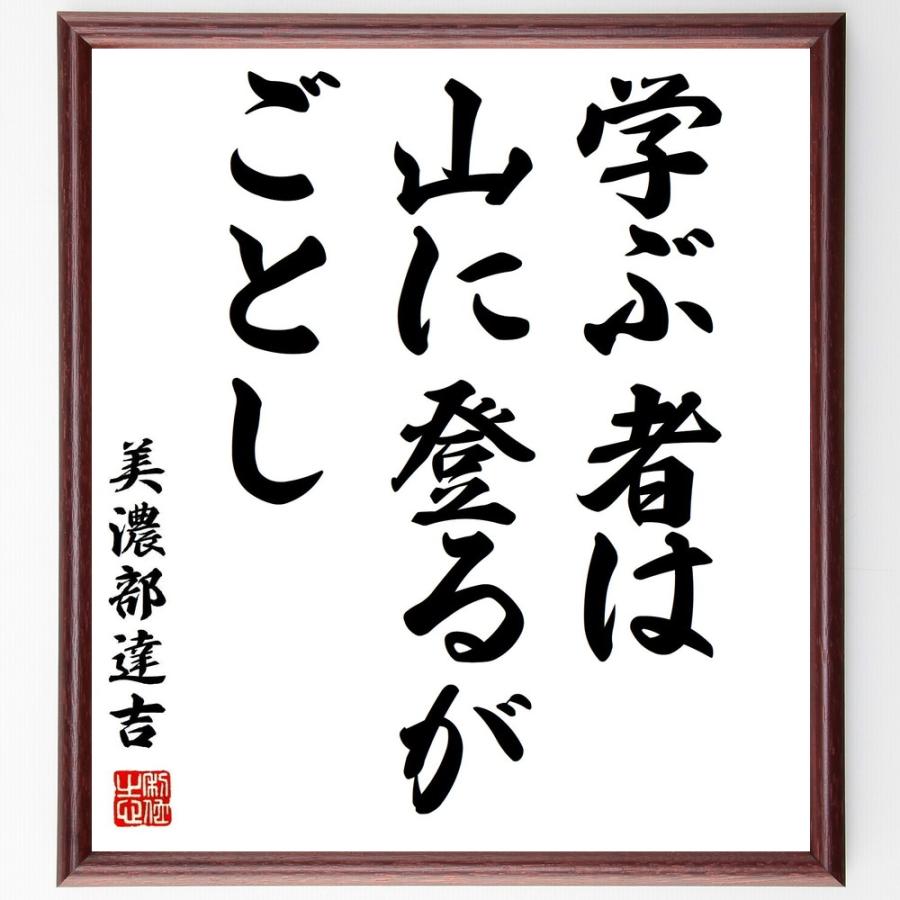 学ぶ者は
山に登るが
ごとし
美濃部達吉